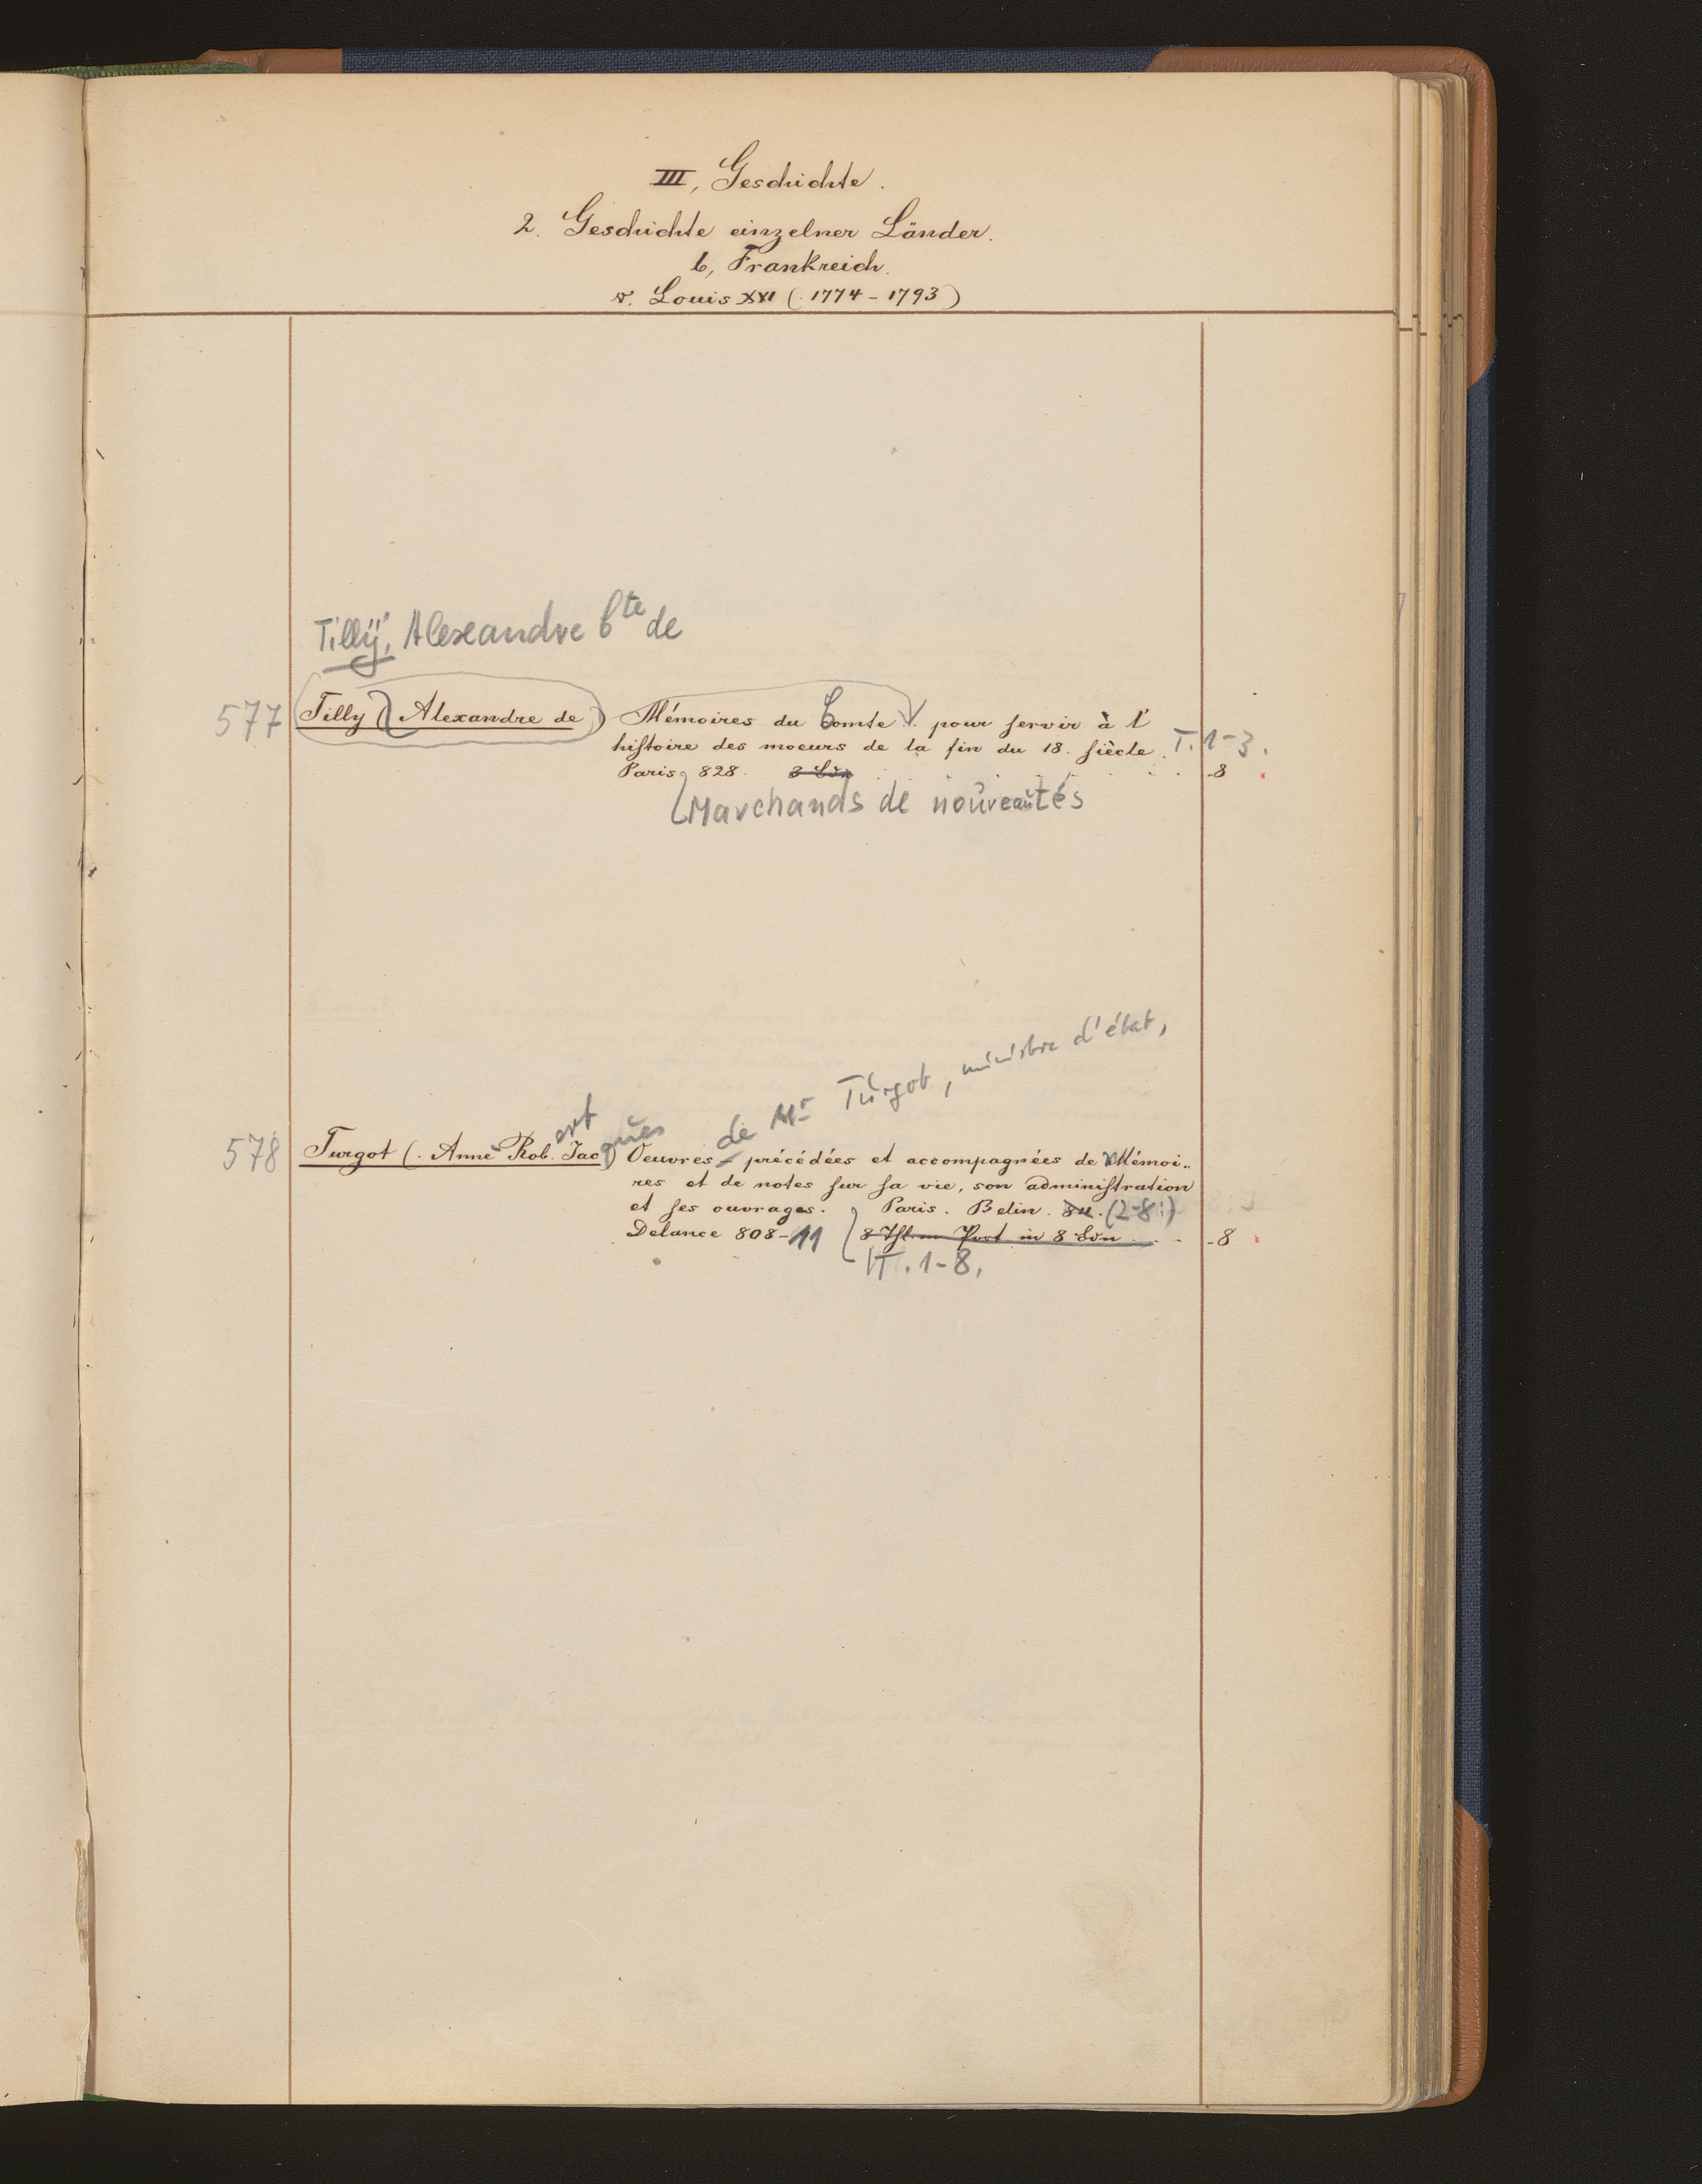 III, Geschichte.
2. Geschichte einzelner Länder.
b, Frankreich.
v. Louis XVI (. 1774 - 1793)
Tilly, Alexandre Cte de
577 Tilly (Alexandre de) Mémoires du Comte pour servir à l'
histoire des moeurs de la fin du 18. siècle. T. 1-3.
Paris, 828. 3 Bdn 8
Marchands de nouveautés
de Mr Turgot, ministre d'état,
ert ques
578 Turgot (. Anne-Rob. Jac) Oeuvres précédées et accompagnées de Mémoi„
res et de notes sur sa vie, son administration
et ses ouvrages. Paris. Belin. (2-8:)
Delance 808-11 8 Thl. in 8 Bdn 8
T. 1-8.